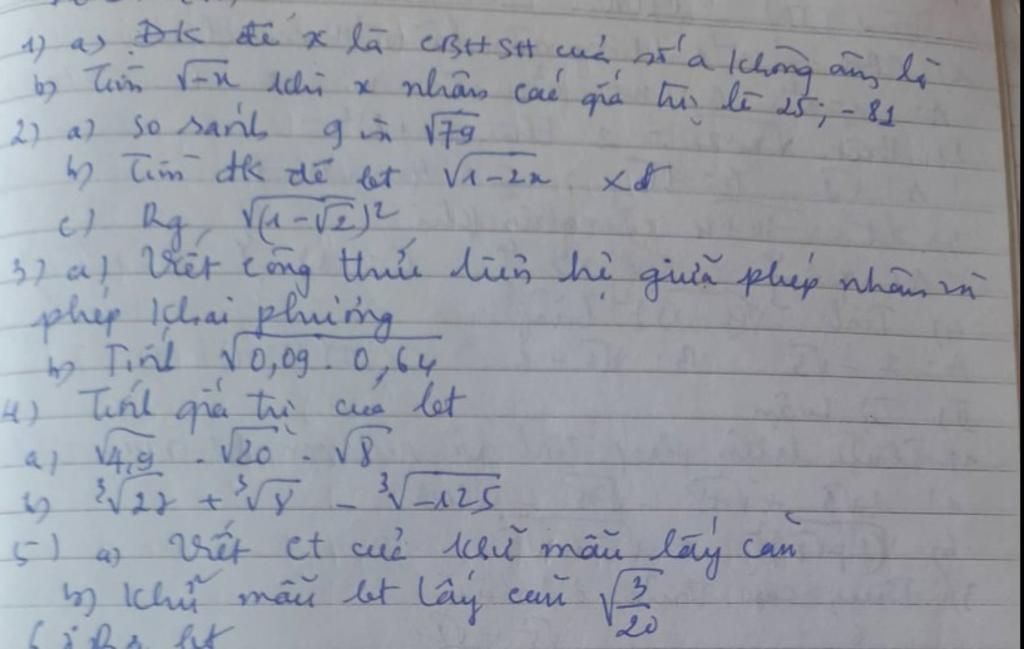 1) a) ĐK để x là CBHSH của số a không âm là
b) Tìm √-x khi x nhận các giá trị là 25; -81
2) a) so sánh 9 và √79
b) Tìm đk để bt √1-2x xđ
c) Rg √(1-√2)²
3) a) Viết công thức liên hệ giữa phép nhân và
phép khai phương
b) Tính √0,09 . 0,64
4) Tính giá trị của bt
a) √4,9 . √20 . √8
b) ³√27 + ³√8 - ³√-125
5) a) Viết ct của khử mẫu lấy căn
b) Khử mẫu bt lấy căn √3/20